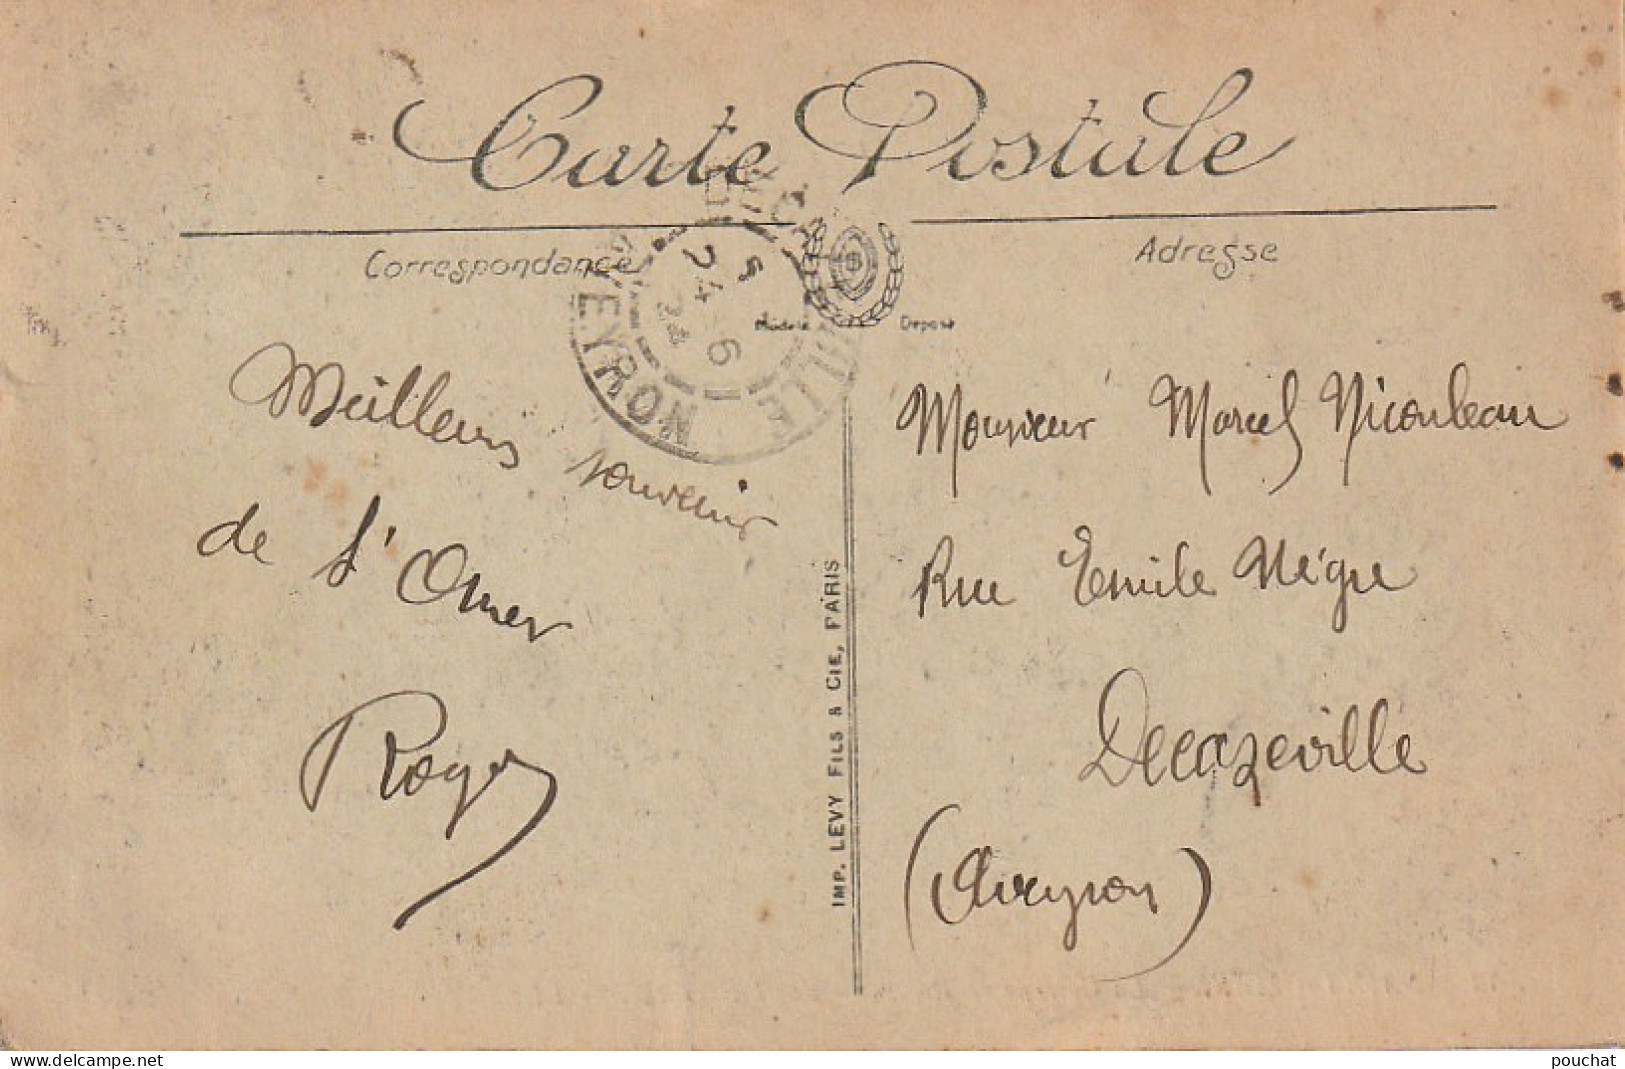 Carte Postale
Correspondance
Adresse
DECAZEVILLE
AVEYRON
24 - 6
24
Modèle Déposé
Meilleurs souvenirs
de St Omer
Roger
Monsieur Marcel Nicouleau
Rue Emile Nègre
Decazeville
(Aveyron)
IMP. LEVY FILS & CIE, PARIS
www.delcampe.net
pouchat